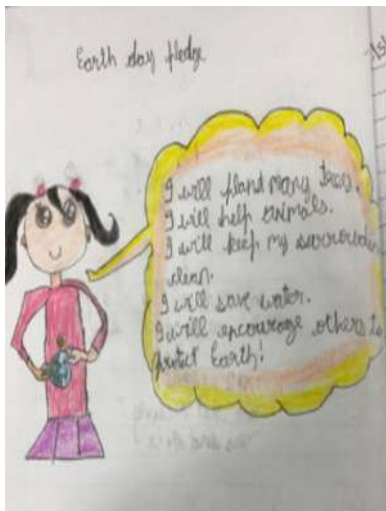 Earth day pledge
I will pland many trees.
I will help animals.
I will keep my
clean.
I will save water.
I will encourage others to
protect Earth!